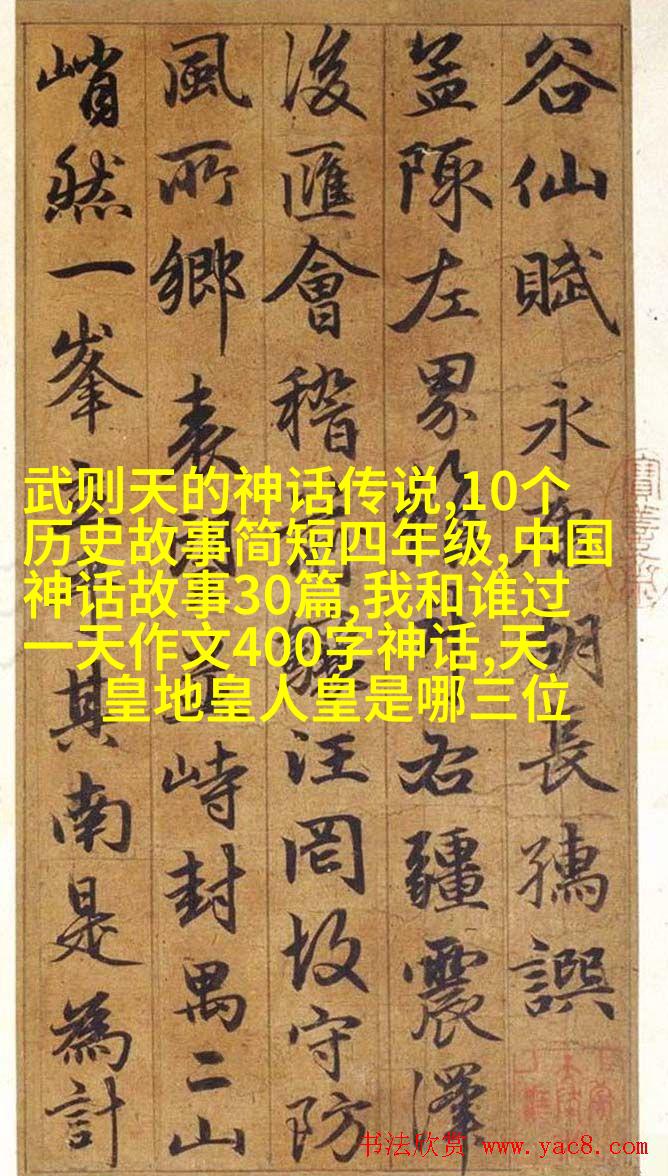 谷仙賦 永康胡長孺譔
陬左界右疆震澤
後滙會稽汪罔故守防
風所鄉表峙封禺二山
峭然一峯其南是為計
武则天的神话传说,10个
历史故事简短四年级,中国
神话故事30篇,我和谁过
一天作文400字神话,天
皇地皇人皇是哪三位
书法欣赏 www.yac8.com